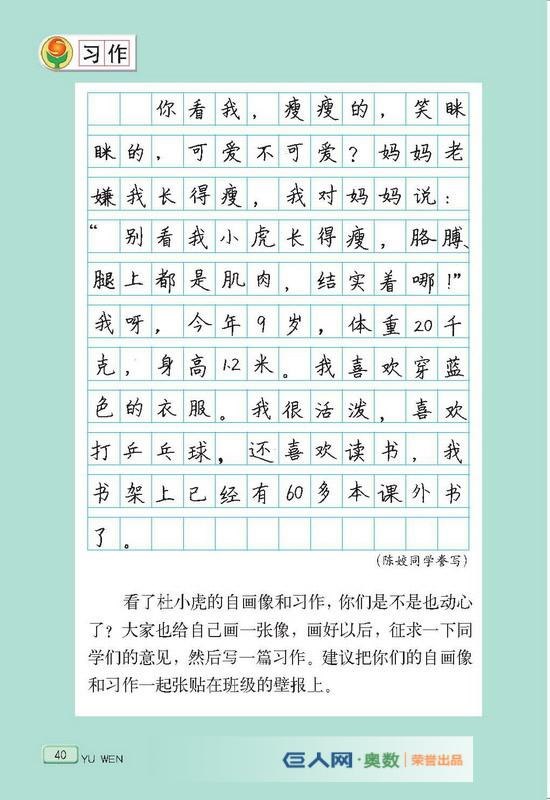 习作
你看我，瘦瘦的，笑眯
眯的，可爱不可爱？妈妈老
嫌我长得瘦，我对妈妈说：
“别看我小虎长得瘦，胳膊、
腿上都是肌肉，结实着哪！”
我呀，今年9岁，体重20千
克，身高1.2米。我喜欢穿蓝
色的衣服。我很活泼，喜欢
打乒乓球，还喜欢读书，我
书架上已经有60多本课外书
了。
（陈姣同学誊写）
看了杜小虎的自画像和习作，你们是不是也动心
了？大家也给自己画一张像，画好以后，征求一下同
学们的意见，然后写一篇习作。建议把你们的自画像
和习作一起张贴在班级的壁报上。
40 YU WEN
巨人网·奥数 荣誉出品